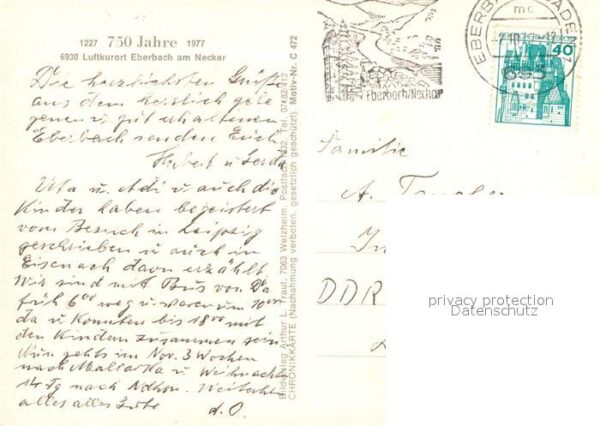 1227 750 Jahre 1977
6930 Luftkurort Eberbach am Neckar
Die herzlichsten Grüße
aus dem herrlich gele
genen u gut erhaltenen
Eberbach senden Euch
Herbert u
Uta u. Adi u auch die
Kinder haben begeistert
vom Besuch in Leipzig
geschrieben u auch in
Eisenach davon erzählt.
Wir sind mit Bus von
früh 6⁰⁰ weg u waren um 10
da u konnten bis 18⁰⁰ mit
den Kindern zusammen sein
Nun gehts im Nov. 3 Wochen
nach u Weihnacht
14 Tg nach Weiterhin
alles alles Gute
d. O.
Bildverlag Arthur L. Traut, 7063 Welzheim, Postfach 1432, Tel. 07182/412
CHRONIKKARTE (Nachahmung verboten, gesetzlich geschützt), Motiv-Nr. C 472
Eberbach/Neckar
EBERBACH BADEN
mc
693
40
Familie
A.
DDR
privacy protection
Datenschutz